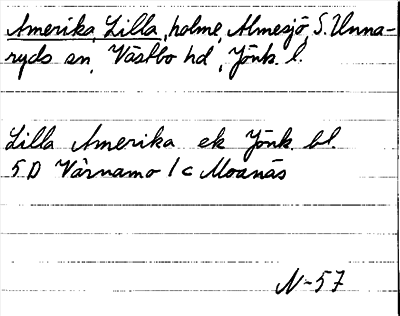 Amerika, Lilla, holme, Almesjö, S. Unna-
ryds sn, Västbo hd, Jönk. l.
Lilla Amerika ek Jönk. bl.
5 D Värnamo 1 c Moanäs
N-57